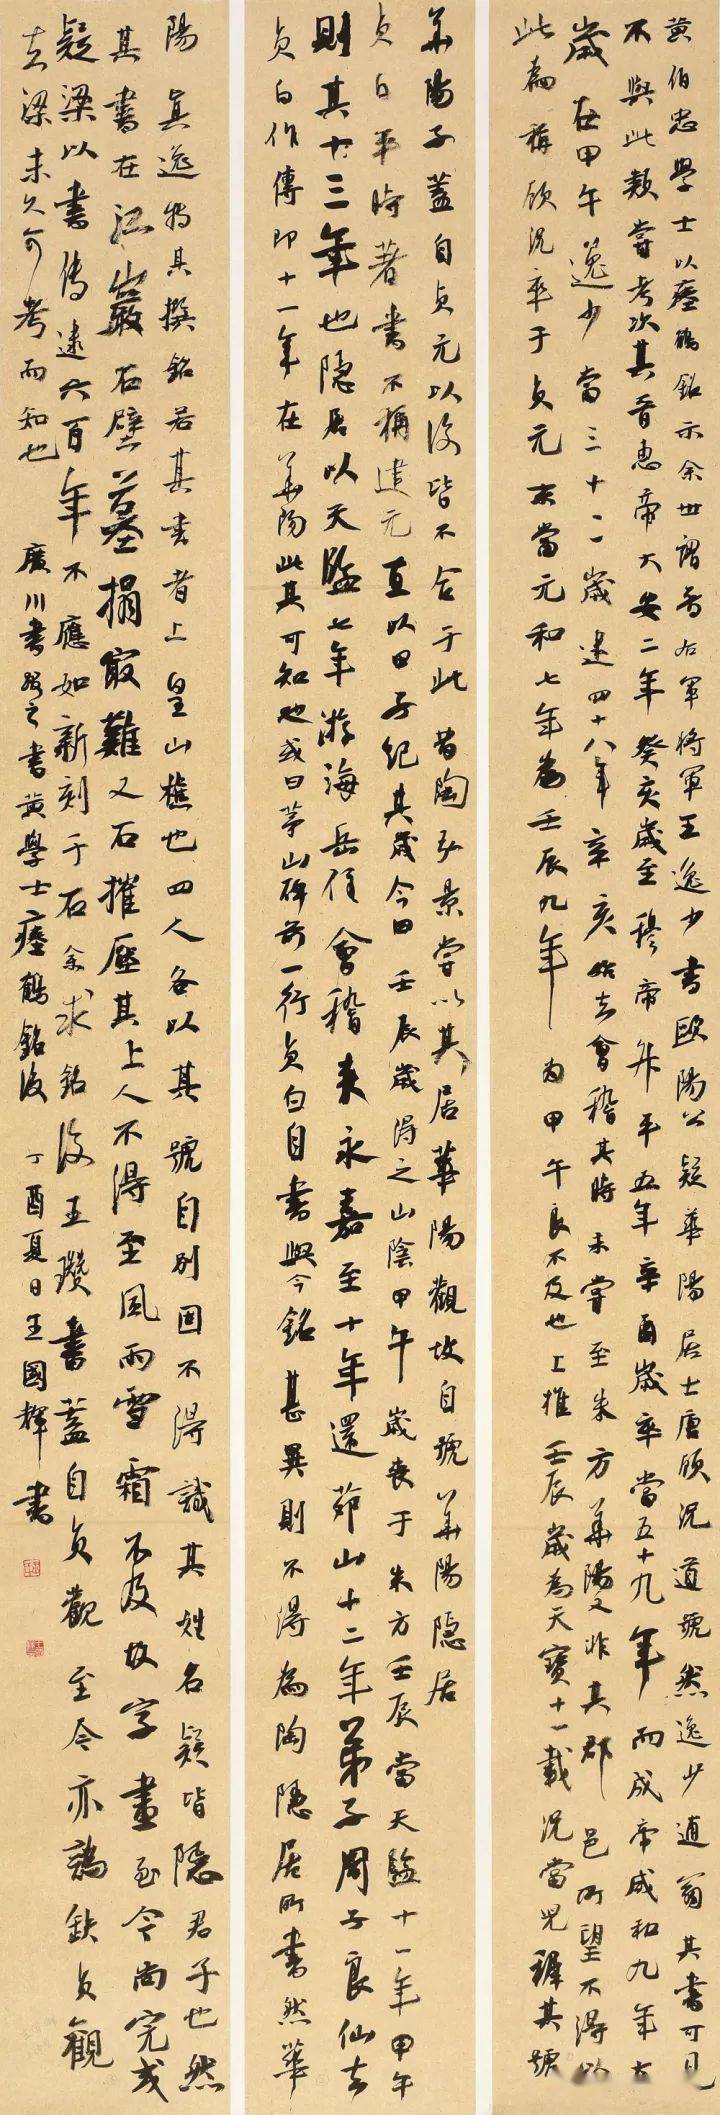 黄伯思學士以瘞鶴銘示余世謂晉右軍將軍王逸少書歐陽公疑華陽居士唐顧況道號然逸少逎翁其書可見
不與此類嘗考次其晉惠帝大安二年癸亥歲至穆帝升平五年辛酉歲卒當五十九年而成帝咸和九年在
歲在甲午逸少當三十二歲逮四十八年辛亥始去會稽其時未嘗至朱方華陽又非其郡邑所望不得以
此為稱顧況卒于貞元末當元和七年為壬辰九年為甲午良不及也上推壬辰歲為天寶十一載況當兒稚其號
華陽子蓋自貞元以後皆不合于此昔陶弘景嘗以其居華陽觀故自號華陽隱居
貞白平時著書不稱建元直以甲子紀其歲今曰壬辰歲得之山陰甲午歲喪于朱方壬辰當天監十一年甲午
則其十三年也隱居以天監七年游海岳住會稽來永嘉至十年還茆山十二年弟子周子良仙去
貞白作傳即十一年在華陽此其可知也或曰茅山碑前一行貞白自書與今銘甚異則不得為陶隱居所書然華
陽真逸特其撰銘若其書者上皇山樵也四人各以其號自別固不得識其姓名疑皆隱君子也然
其書在江巖石壁摹搨最難又石摧壓其上人不得至風雨雪霜不及故字畫至今尚完或
疑梁以書傳逮六百年不應如新刻于石余求銘後王瓚書蓋自貞觀至今亦讹缺貞觀
去梁未久可考而知也 廣川書跋之書黄學士瘞鶴銘後 丁酉夏日王國輝書